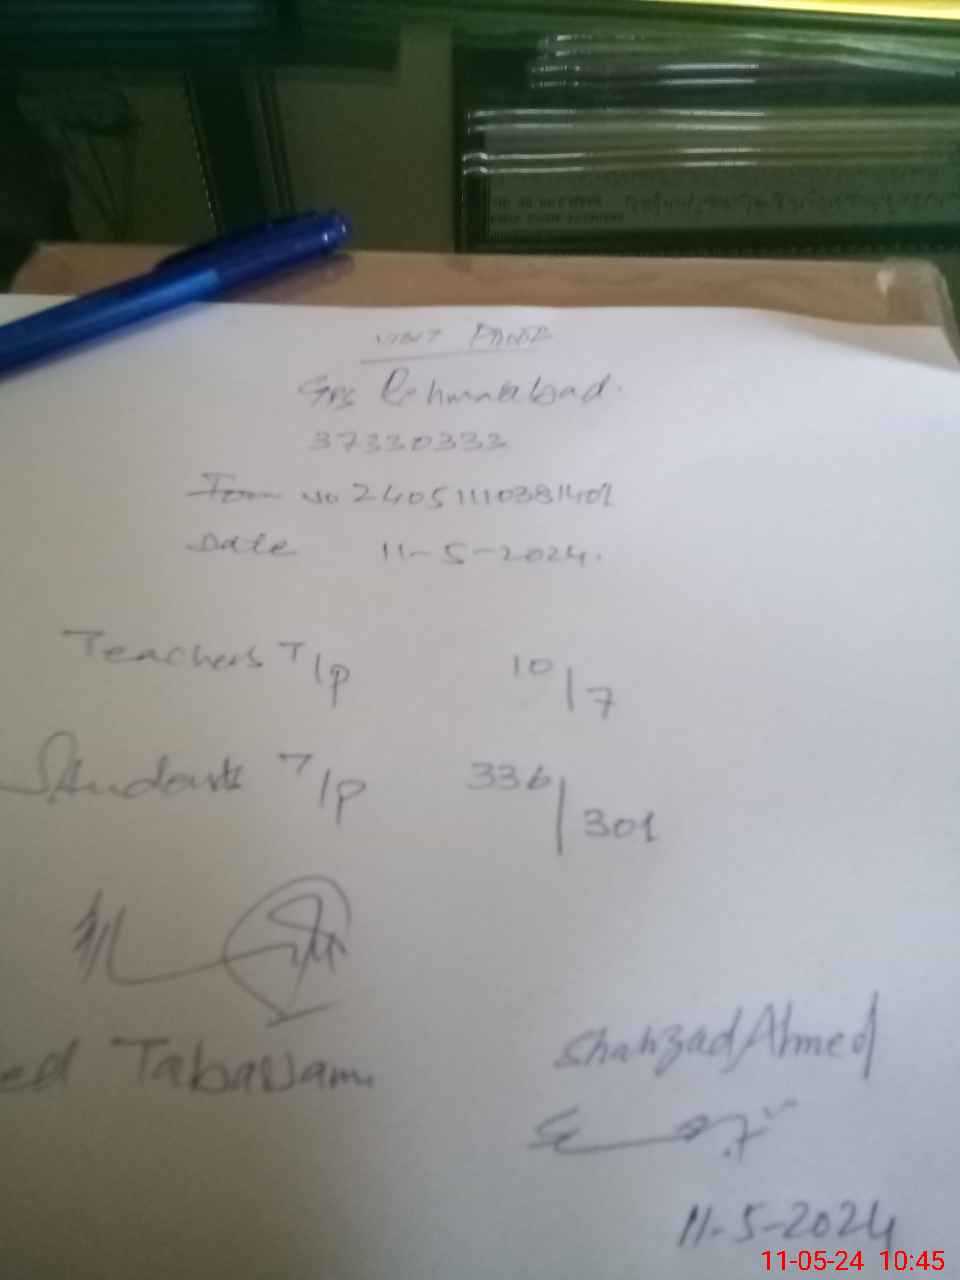 VISIT PROOF
GPS Rehmanabad.
37330333
Form No 240511110381401
Date 11-5-2024.
Teachers T/P 10/7
Students T/P 336/301
ed Tabassam
Shahzad Ahmed
11-5-2024
11-05-24 10:45